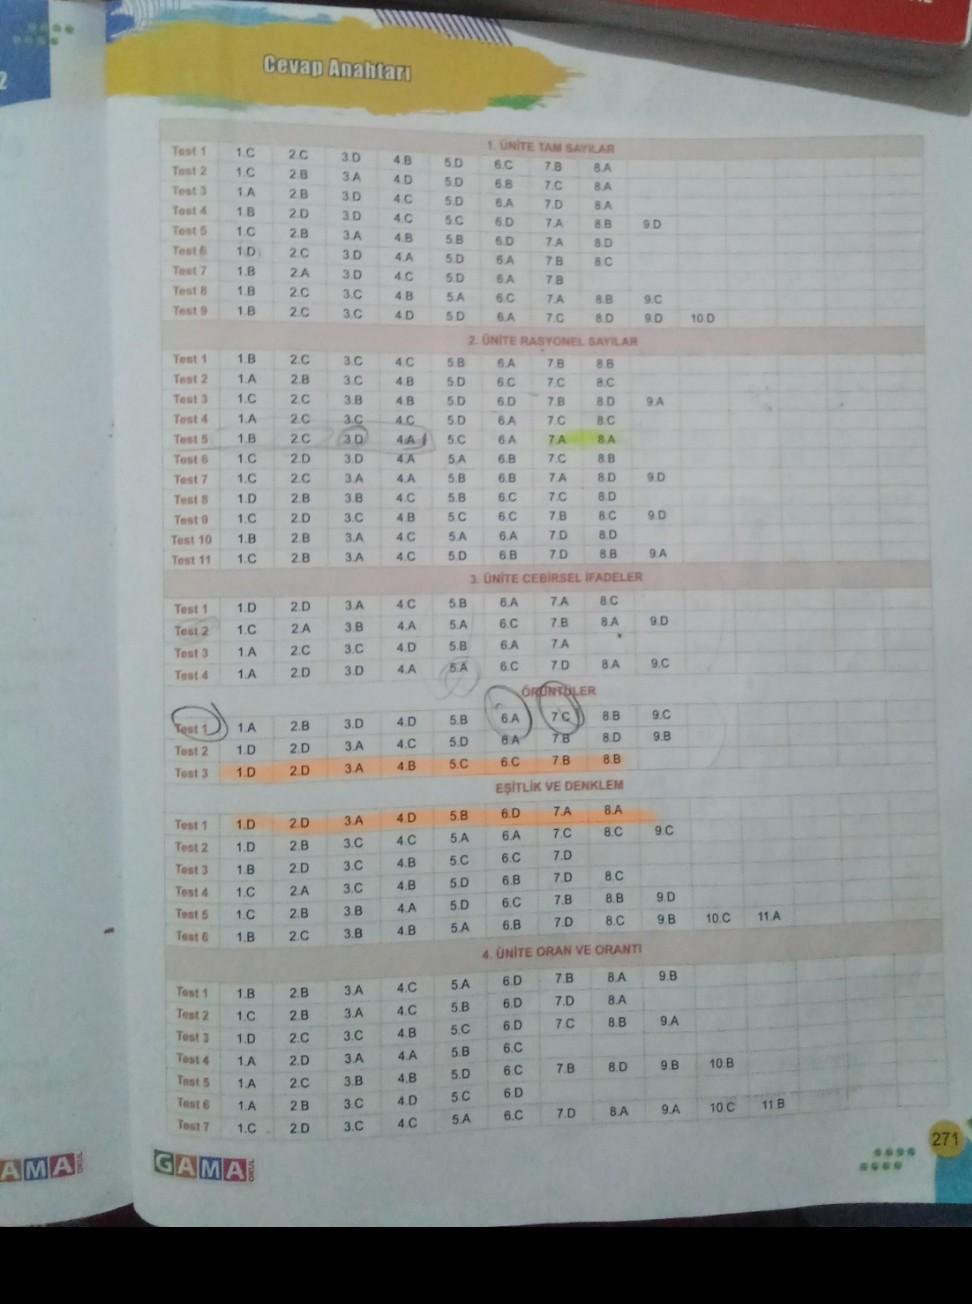 2
Cevap Anahtarı
1. ÜNİTE TAM SAYILAR
Test 1 1.C 2.C 3.D 4.B 5.D 6.C 7.B 8.A
Test 2 1.C 2.B 3.A 4.D 5.D 6.B 7.C 8.A
Test 3 1.A 2.B 3.D 4.C 5.D 6.A 7.D 8.A
Test 4 1.B 2.D 3.D 4.C 5.C 6.D 7.A 8.B 9.D
Test 5 1.C 2.B 3.A 4.B 5.B 6.D 7.A 8.D
Test 6 1.D 2.C 3.D 4.A 5.D 6.A 7.B 8.C
Test 7 1.B 2.A 3.D 4.C 5.D 6.A 7.B
Test 8 1.B 2.C 3.C 4.B 5.A 6.C 7.A 8.B 9.C
Test 9 1.B 2.C 3.C 4.D 5.D 6.A 7.C 8.D 9.D 10.D
2. ÜNİTE RASYONEL SAYILAR
Test 1 1.B 2.C 3.C 4.C 5.B 6.A 7.B 8.B
Test 2 1.A 2.B 3.C 4.B 5.D 6.C 7.C 8.C
Test 3 1.C 2.C 3.B 4.B 5.D 6.D 7.B 8.D 9.A
Test 4 1.A 2.C 3.C 4.C 5.D 6.A 7.C 8.C
Test 5 1.B 2.C 3.D 4.A 5.C 6.A 7.A 8.A
Test 6 1.C 2.D 3.D 4.A 5.A 6.B 7.C 8.B
Test 7 1.C 2.C 3.A 4.A 5.B 6.B 7.A 8.D 9.D
Test 8 1.D 2.B 3.B 4.C 5.B 6.C 7.C 8.D
Test 9 1.C 2.D 3.C 4.B 5.C 6.C 7.B 8.C 9.D
Test 10 1.B 2.B 3.A 4.C 5.A 6.A 7.D 8.D
Test 11 1.C 2.B 3.A 4.C 5.D 6.B 7.D 8.B 9.A
3. ÜNİTE CEBİRSEL İFADELER
Test 1 1.D 2.D 3.A 4.C 5.B 6.A 7.A 8.C
Test 2 1.C 2.A 3.B 4.A 5.A 6.C 7.B 8.A 9.D
Test 3 1.A 2.C 3.C 4.D 5.B 6.A 7.A
Test 4 1.A 2.D 3.D 4.A 5.A 6.C 7.D 8.A 9.C
ÖRÜNTÜLER
Test 1 1.A 2.B 3.D 4.D 5.B 6.A 7.C 8.B 9.C
Test 2 1.D 2.D 3.A 4.C 5.D 6.A 7.B 8.D 9.B
Test 3 1.D 2.D 3.A 4.B 5.C 6.C 7.B 8.B
EŞİTLİK VE DENKLEM
Test 1 1.D 2.D 3.A 4.D 5.B 6.D 7.A 8.A
Test 2 1.D 2.B 3.C 4.C 5.A 6.A 7.C 8.C 9.C
Test 3 1.B 2.D 3.C 4.B 5.C 6.C 7.D
Test 4 1.C 2.A 3.C 4.B 5.D 6.B 7.D 8.C
Test 5 1.C 2.B 3.B 4.A 5.D 6.C 7.B 8.B 9.D
Test 6 1.B 2.C 3.B 4.B 5.A 6.B 7.D 8.C 9.B 10.C 11.A
4. ÜNİTE ORAN VE ORANTI
Test 1 1.B 2.B 3.A 4.C 5.A 6.D 7.B 8.A 9.B
Test 2 1.C 2.B 3.A 4.C 5.B 6.D 7.D 8.A
Test 3 1.D 2.C 3.C 4.B 5.C 6.D 7.C 8.B 9.A
Test 4 1.A 2.D 3.A 4.A 5.B 6.C
Test 5 1.A 2.C 3.B 4.B 5.D 6.C 7.B 8.D 9.B 10.B
Test 6 1.A 2.B 3.C 4.D 5.C 6.D
Test 7 1.C 2.D 3.C 4.C 5.A 6.C 7.D 8.A 9.A 10.C 11.B
271
AMA
GAMA